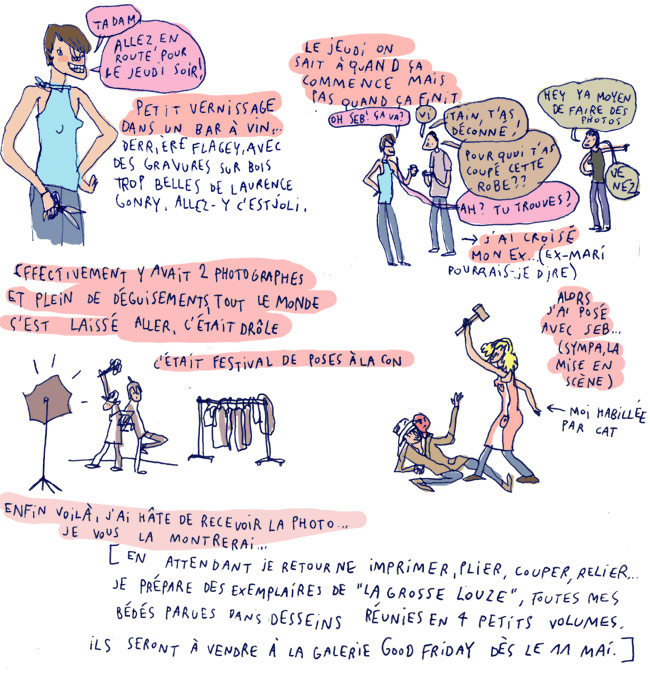 TADAM
ALLEZ EN
ROUTE POUR
LE JEUDI SOIR!
PETIT VERNISSAGE
DANS UN BAR À VIN...
DERRIÈRE FLAGEY, AVEC
DES GRAVURES SUR BOIS
TROP BELLES DE LAURENCE
GONRY. ALLEZ-Y C'EST JOLI.
LE JEUDI ON
SAIT À QUAND ÇA
COMMENCE MAIS
PAS QUAND ÇA FINIT
OH SEB! ÇA VA?
VI
TAIN, T'AS
DÉCONNÉ!
POURQUOI T'AS
COUPÉ CETTE
ROBE??
AH? TU TROUVES?
HEY YA MOYEN
DE FAIRE DES
PHOTOS
VE
NEZ
→ J'AI CROISÉ
MON EX... (EX-MARI
POURRAIS-JE DIRE)
EFFECTIVEMENT Y AVAIT 2 PHOTOGRAPHES
ET PLEIN DE DÉGUISEMENTS, TOUT LE MONDE
C'EST LAISSÉ ALLER, C'ÉTAIT DRÔLE
C'ÉTAIT FESTIVAL DE POSES À LA CON
ALORS
J'AI POSÉ
AVEC SEB...
(SYMPA, LA
MISE EN
SCÈNE)
← MOI HABILLÉE
PAR CAT
ENFIN VOILÀ, J'AI HÂTE DE RECEVOIR LA PHOTO...
JE VOUS LA MONTRERAI...
[ EN ATTENDANT JE RETOURNE IMPRIMER, PLIER, COUPER, RELIER...
JE PRÉPARE DES EXEMPLAIRES DE "LA GROSSE LOUZE", TOUTES MES
BÉDÉS PARUES DANS DESSEINS RÉUNIES EN 4 PETITS VOLUMES.
ILS SERONT À VENDRE À LA GALERIE GOOD FRIDAY DÈS LE 11 MAI. ]